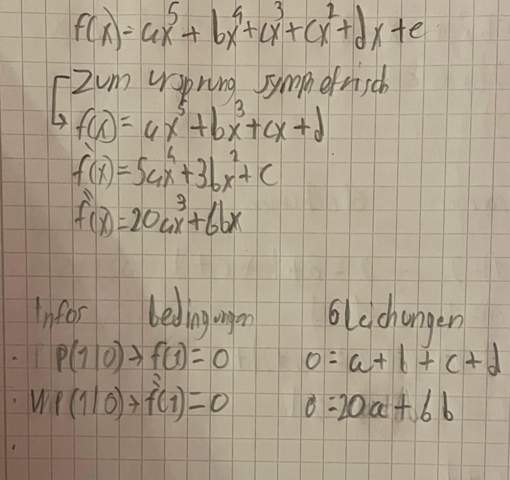 f(x)=ax⁵+bx⁴+cx³+cx²+dx+e
Zum ursprung symmetrisch
↳ f(x)=ax⁵+bx³+cx+d
f'(x)=5ax⁴+3bx²+c
f''(x)=20ax³+6bx
Infos bedingungen Gleichungen
· P(1|0)→f(1)=0 0=a+b+c+d
· WP(1|0)→f''(1)=0 0=20a+6b
·